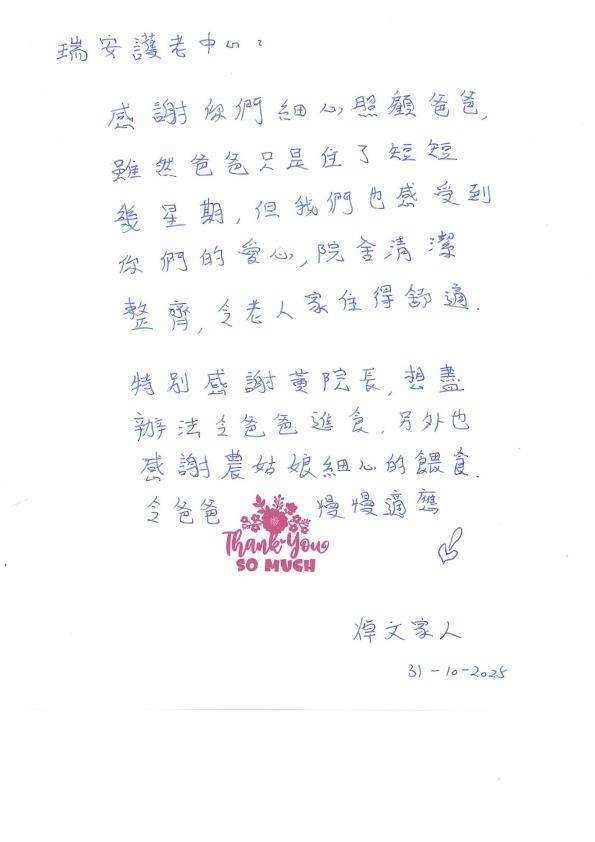 瑞安護老中心：
感謝你們細心照顧爸爸,
雖然爸爸只是住了短短
幾星期,但我們也感受到
你們的愛心,院舍清潔
整齊,令老人家住得舒適.
特別感謝黃院長,想盡
辦法令爸爸進食,另外也
感謝農姑娘細心的餵食.
令爸爸 慢慢適應
Thank You
SO MUCH
焯文家人
31-10-2025